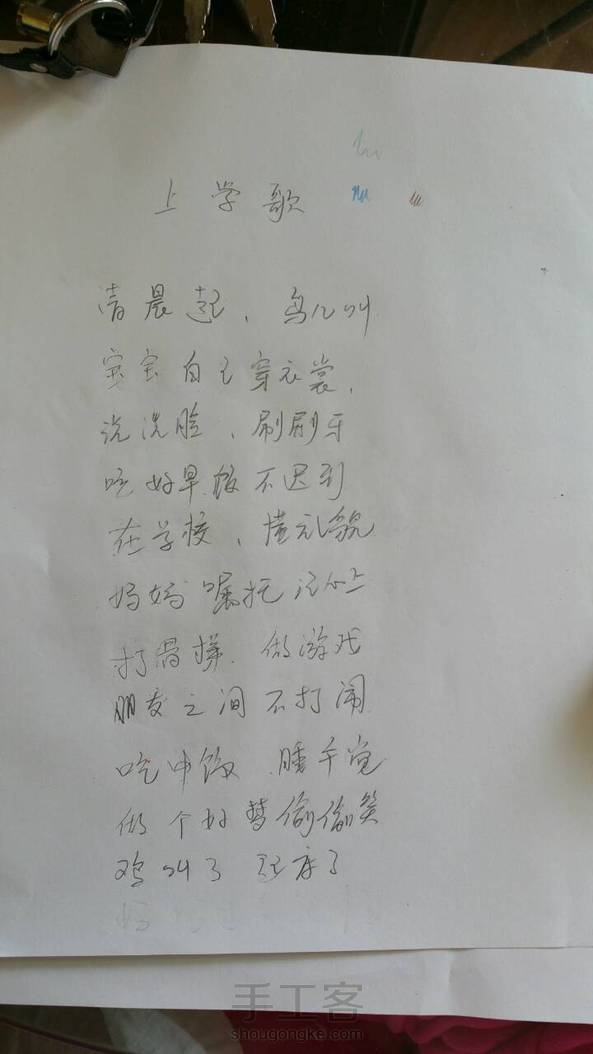 上学歌
清晨起、鸟儿叫
宝宝自己穿衣裳、
洗洗脸、刷刷牙
吃好早饭不迟到
在学校、懂礼貌
妈妈嘱托记心上
打滑梯、做游戏
朋友之间不打闹
吃中饭、睡午觉
做个好梦偷偷笑
鸡叫了 起床了
手工客
shougongke.com